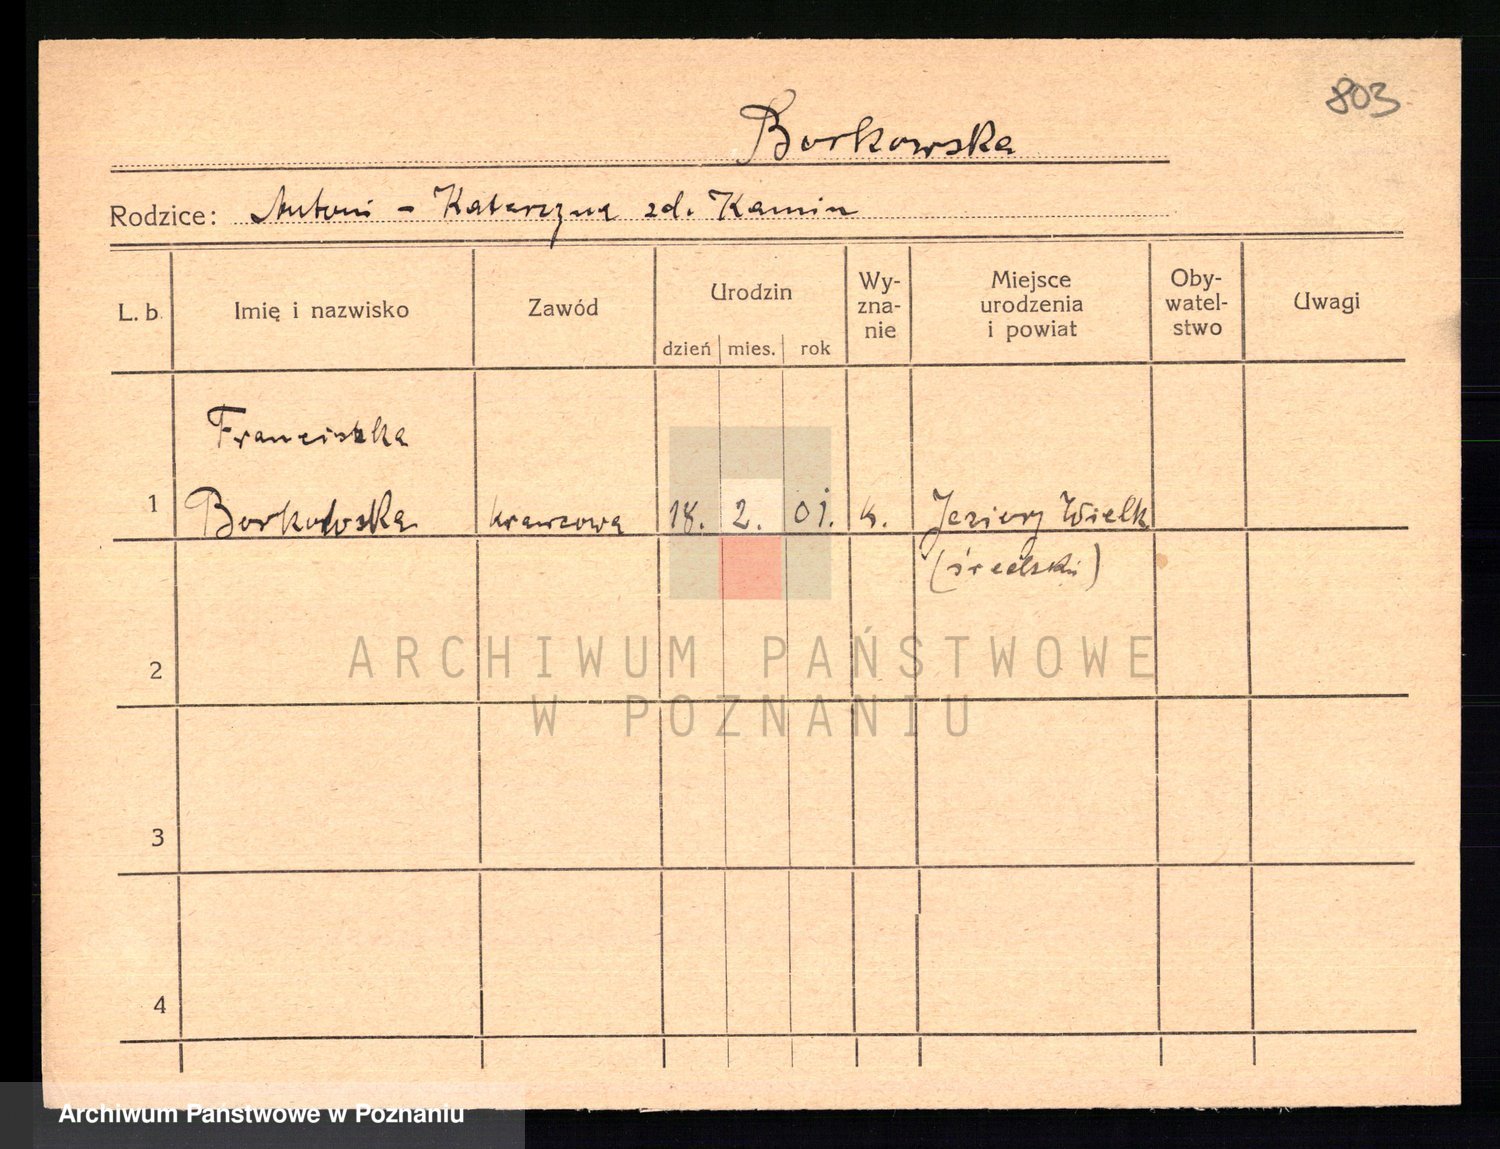 803
Borkowska
Rodzice: Antoni - Katarzyna zd. Kamin
L. b. Imię i nazwisko Zawód Urodzin Wy- Miejsce Oby- Uwagi
zna- urodzenia watel-
nie i powiat stwo
dzień mies. rok
Franciszka
1 Borkowska krawcowa 18. 2. 01. k. Jeziory Wielk
(średzki)
2
3
4
ARCHIWUM PAŃSTWOWE
W POZNANIU
Archiwum Państwowe w Poznaniu